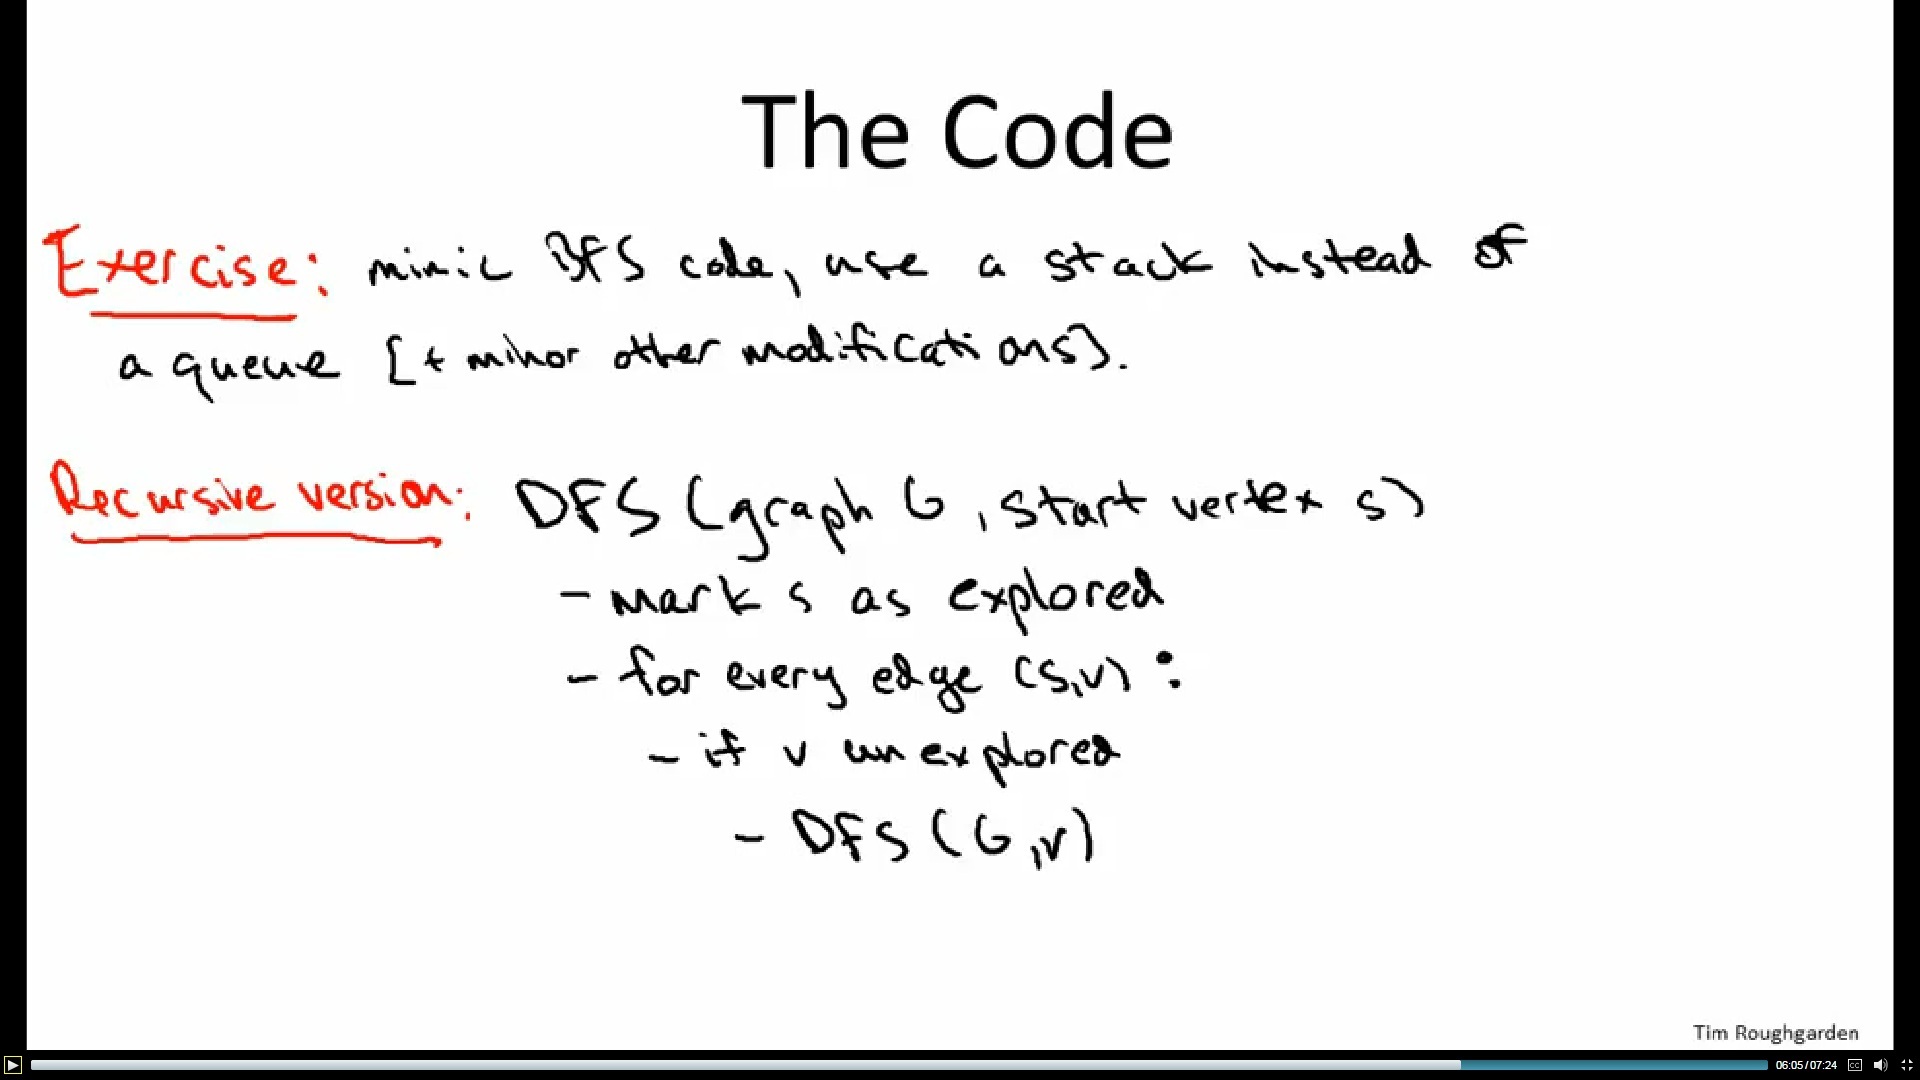 The Code
Exercise: mimic BFS code, use a stack instead of
a queue [+ minor other modifications].
Recursive version: DFS (graph G, start vertex s)
- mark s as explored
- for every edge (s,v) :
- if v unexplored
- DFS (G,v)
Tim Roughgarden
06:05/07:24 CC